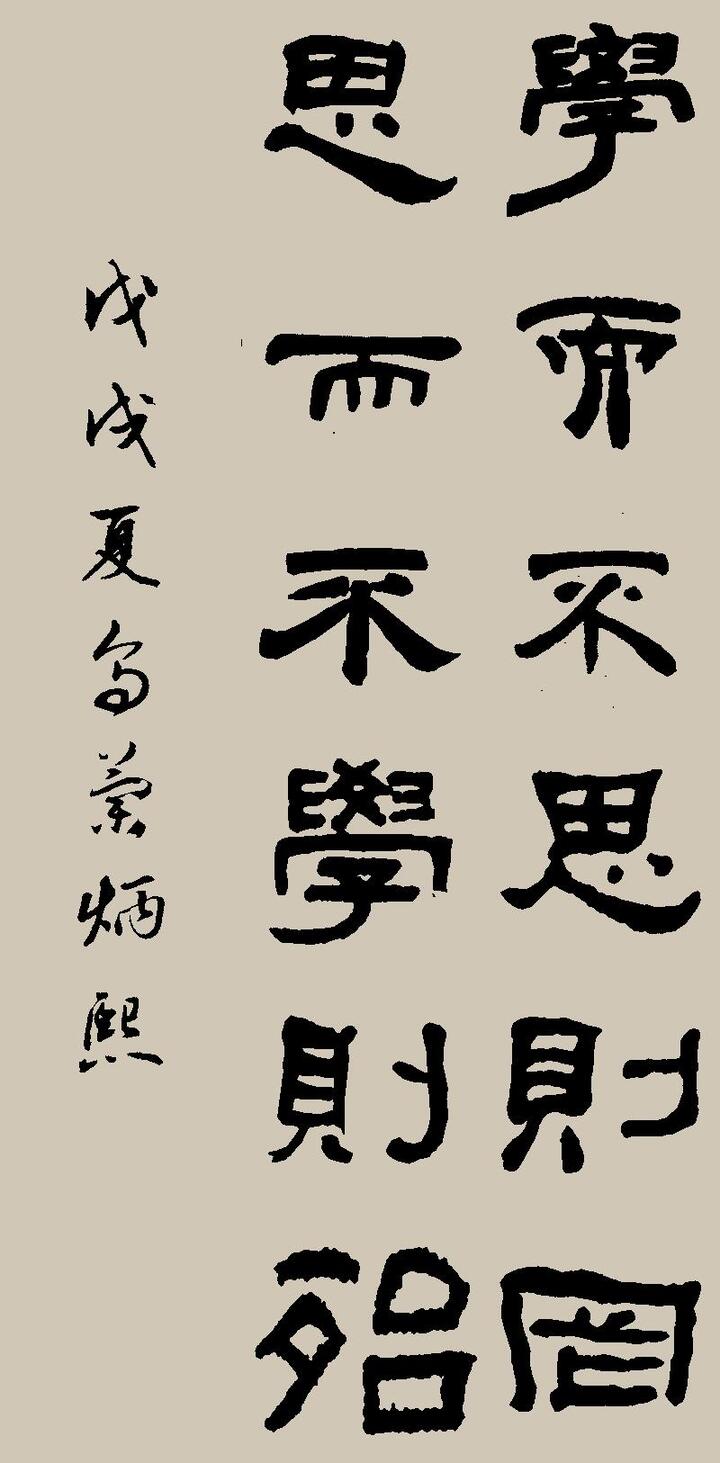 學而不思則罔
思而不學則殆
戊戌夏炳熙